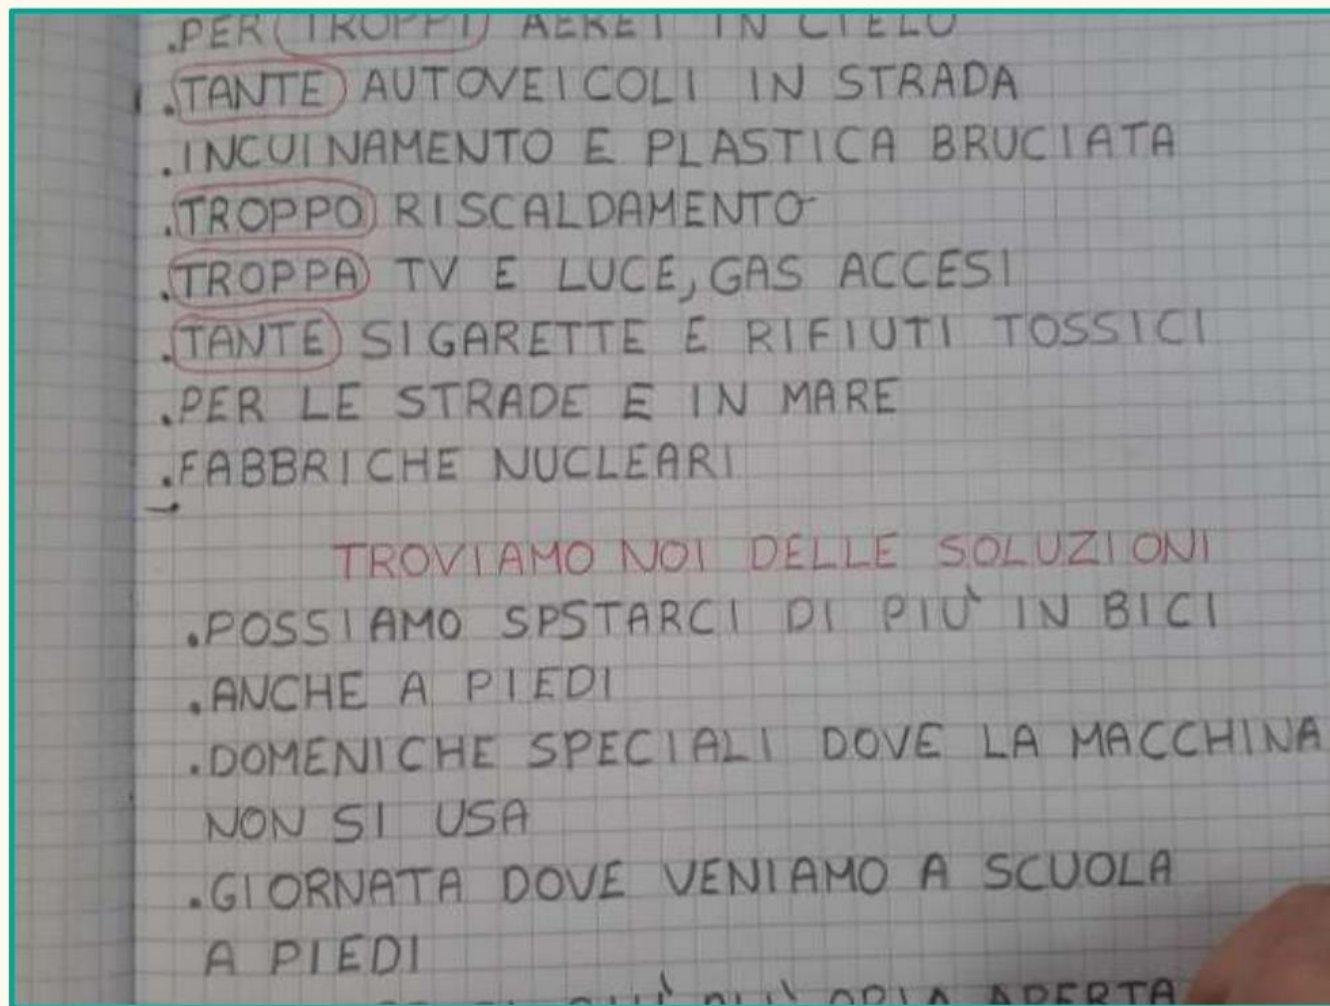 .PER TROPPI AEREI IN CIELO
.TANTE AUTOVEICOLI IN STRADA
.INCUINAMENTO E PLASTICA BRUCIATA
.TROPPO RISCALDAMENTO
.TROPPA TV E LUCE, GAS ACCESI
.TANTE SIGARETTE E RIFIUTI TOSSICI
.PER LE STRADE E IN MARE
.FABBRICHE NUCLEARI
TROVIAMO NOI DELLE SOLUZIONI
.POSSIAMO SPSTARCI DI PIÙ IN BICI
.ANCHE A PIEDI
.DOMENICHE SPECIALI DOVE LA MACCHINA
NON SI USA
.GIORNATA DOVE VENIAMO A SCUOLA
A PIEDI
ARIA APERTA